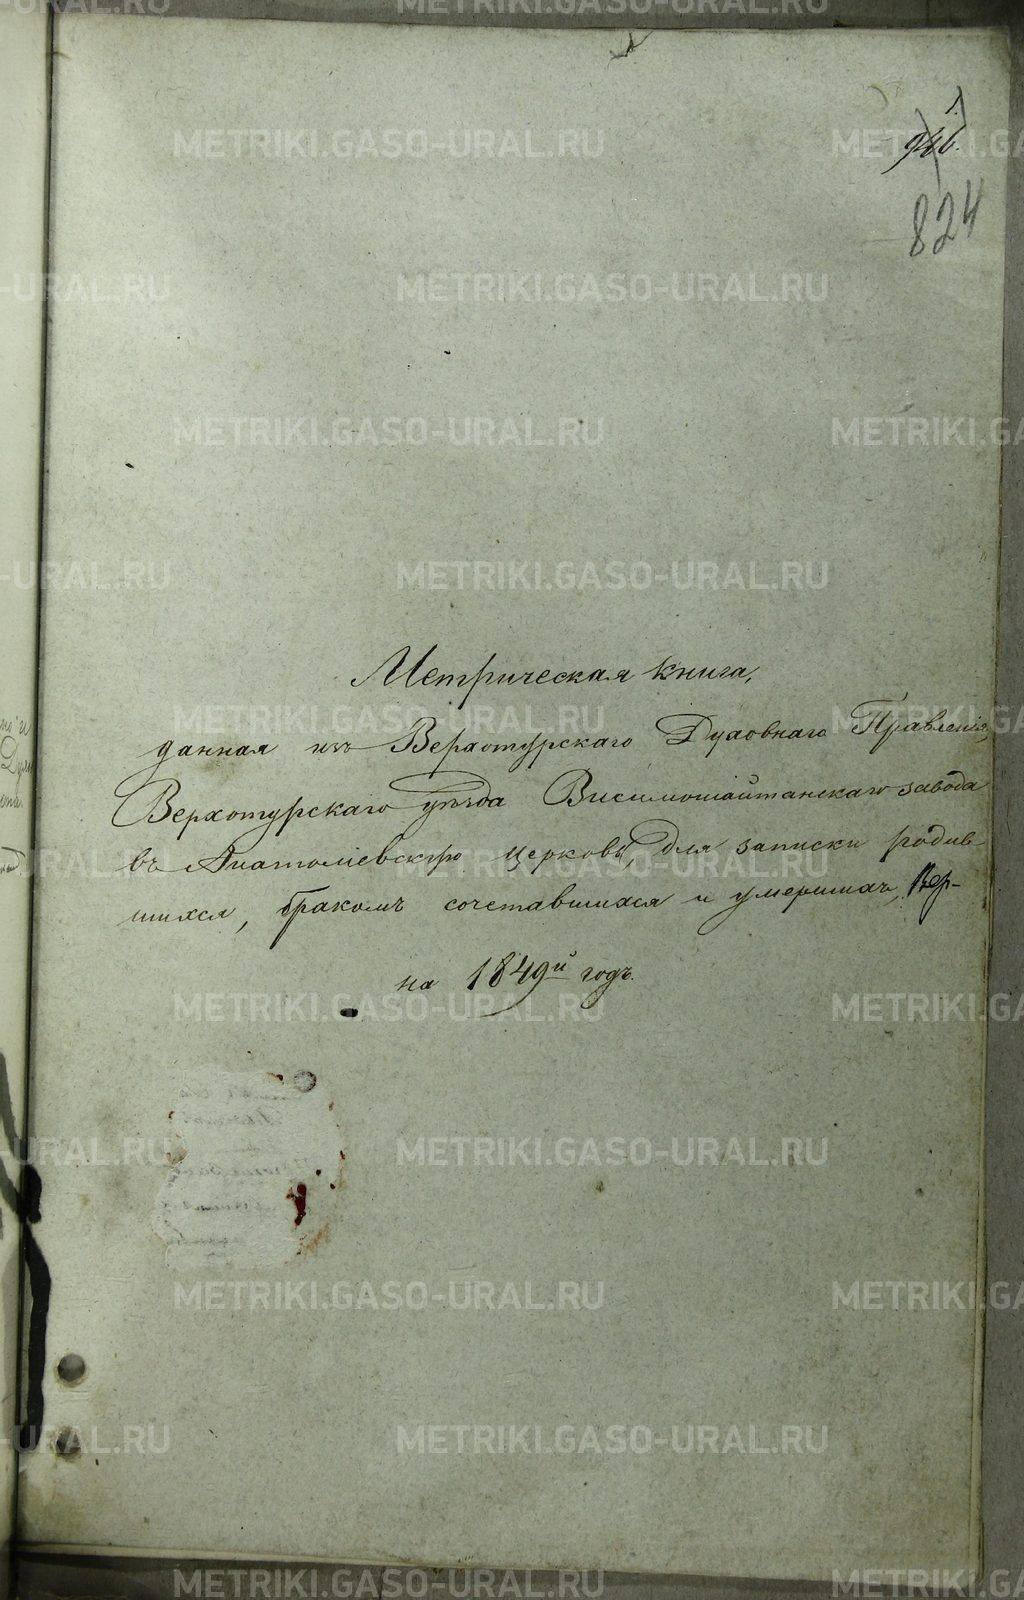 1.
946.
824
Метрическая книга,
данная изъ Верхотурскаго Духовнаго Правленія,
Верхотурскаго уѣзда Висимошайтанскаго завода
въ Анатоліевскую церковь, для записки родив-
шихся, бракомъ сочетавшихся и умершихъ,
на 1849й годъ.
METRIKI.GASO-URAL.RU